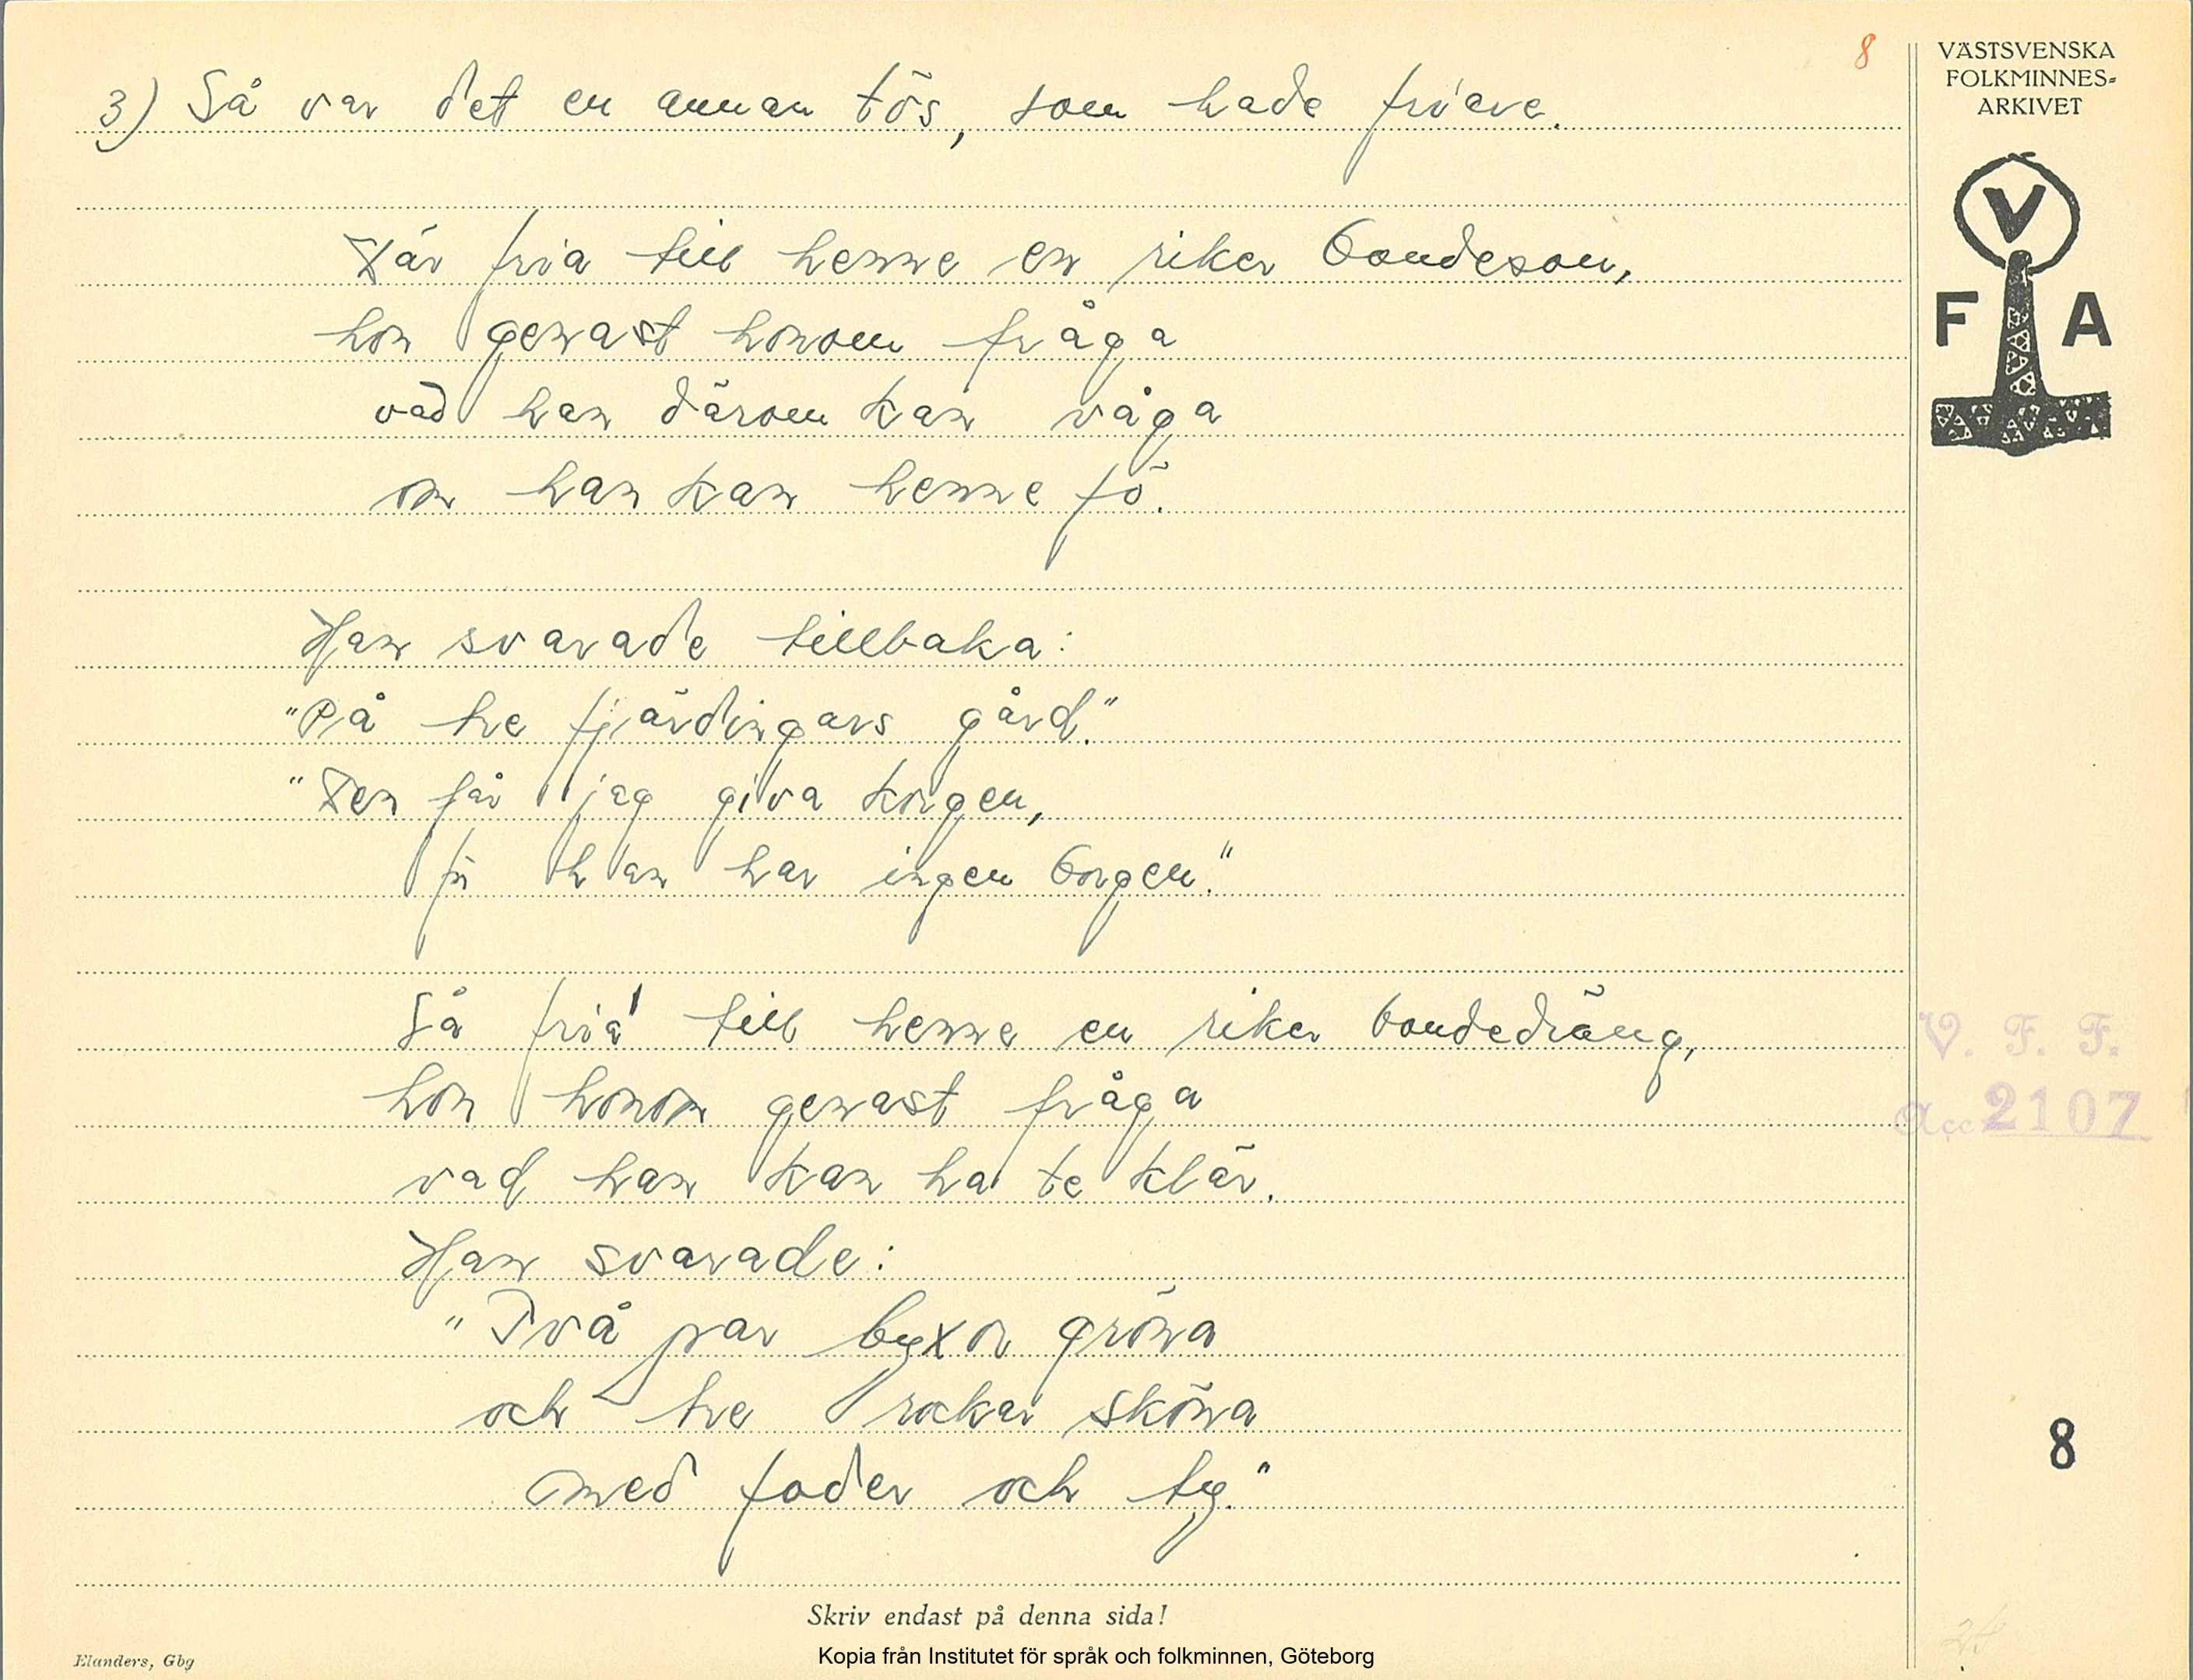 8
3) Så var det en annan tös, som hade friare.
Där fria till henne en riker bondeson,
hon genast honom fråga
vad han därom kan våga
om han kan henne fö.
Han svarade tillbaka:
"På tre fjärdingars gård."
"Den får jag giva korgen,
för han har ingen borgen."
Så fria' till henne en riker bondedräng,
hon honom genast fråga
vad han kan ha te klär.
Han svarade:
"Två par byxor gröna
och tre rockar sköna
med foder och tyg."
Skriv endast på denna sida!
Elanders, Gbg
Kopia från Institutet för språk och folkminnen, Göteborg
VÄSTSVENSKA
FOLKMINNES-
ARKIVET
V
F A
V. F. F.
Acc 2107
8